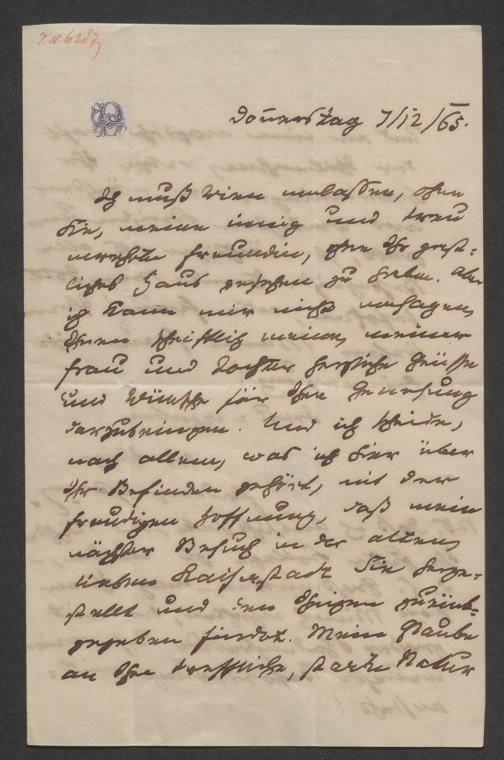 I. N. 6287
Donnerstag 7/12/65.
Ich muß Wien verlassen, ohne
Sie, meine innig und treu
verehrte Freundin, ohne Ihr gast-
liches Haus gesehen zu haben. Aber
ich kann mir nicht versagen,
Ihnen schriftlich meine, meiner
Frau und Tochter herzliche Grüße
und Wünsche für Ihre Genesung
darzubringen. Und ich scheide,
nach allem, was ich hier über
Ihr Befinden gehört, mit der
freudigen Hoffnung, daß mein
nächster Besuch in der alten,
lieben Kaiserstadt Sie herge-
stellt und den Ihrigen zurück-
gegeben findet. Mein Glaube
an Ihre treffliche, starke Natur